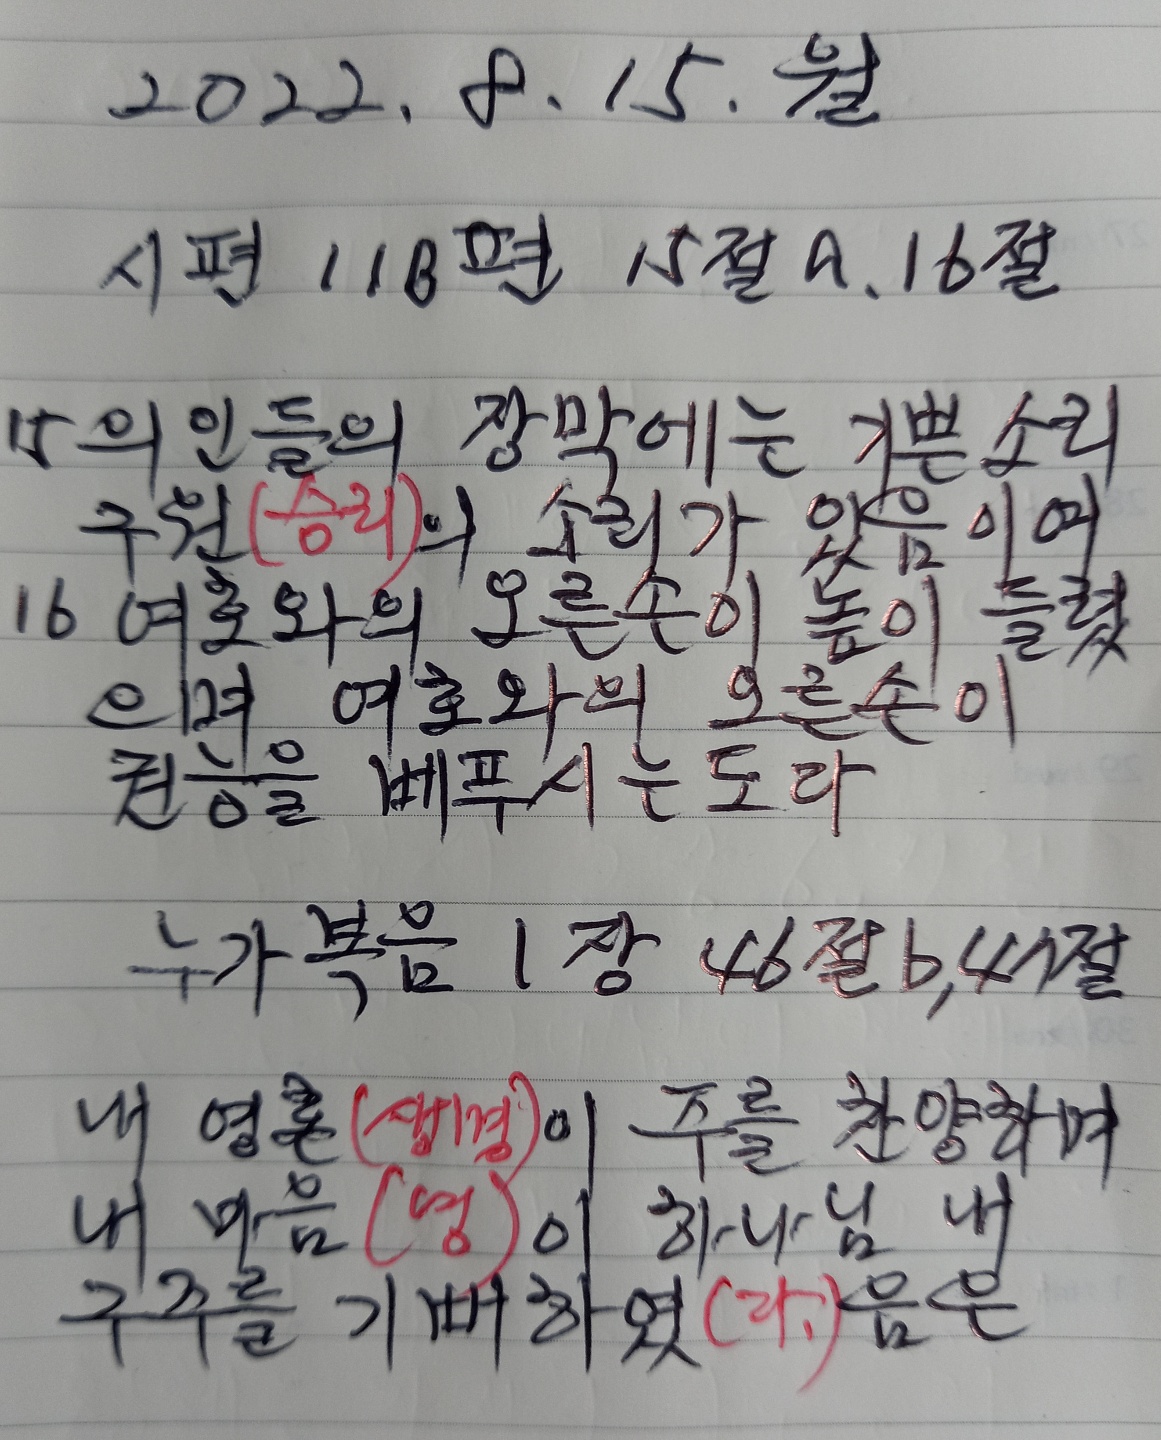 2022. 8. 15. 월
시편 118편 15절 a. 16절
15 의인들의 장막에는 기쁜소리
구원(승리)의 소리가 있음이여
16 여호와의 오른손이 높이 들렸
으며 여호와의 오른손이
권능을 베푸시는도다
누가복음 1장 46절 b, 47절
내 영혼(생명)이 주를 찬양하며
내 마음(영)이 하나님 내
구주를 기뻐하였(라.)음은